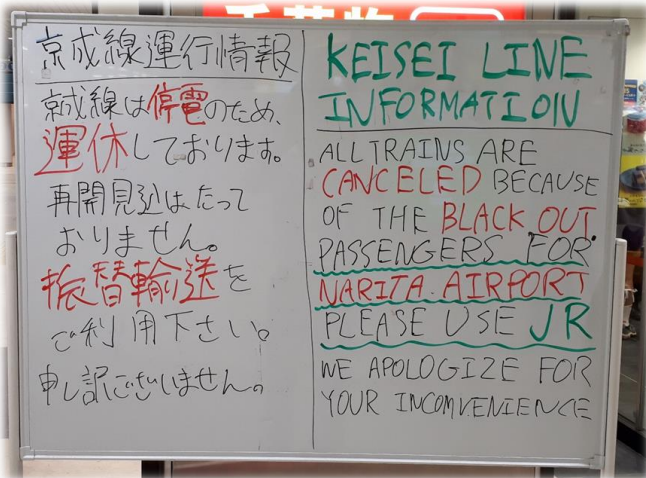 京成線運行情報
京成線は停電のため、
運休しております。
再開見込は、たって
おりません。
振替輸送を
ご利用下さい。
申し訳ございません。
KEISEI LINE
INFORMATION
ALL TRAINS ARE
CANCELED BECAUSE
OF THE BLACK OUT
PASSENGERS "FOR"
NARITA AIRPORT
PLEASE USE JR
WE APOLOGIZE FOR
YOUR INCOMVENIENCE